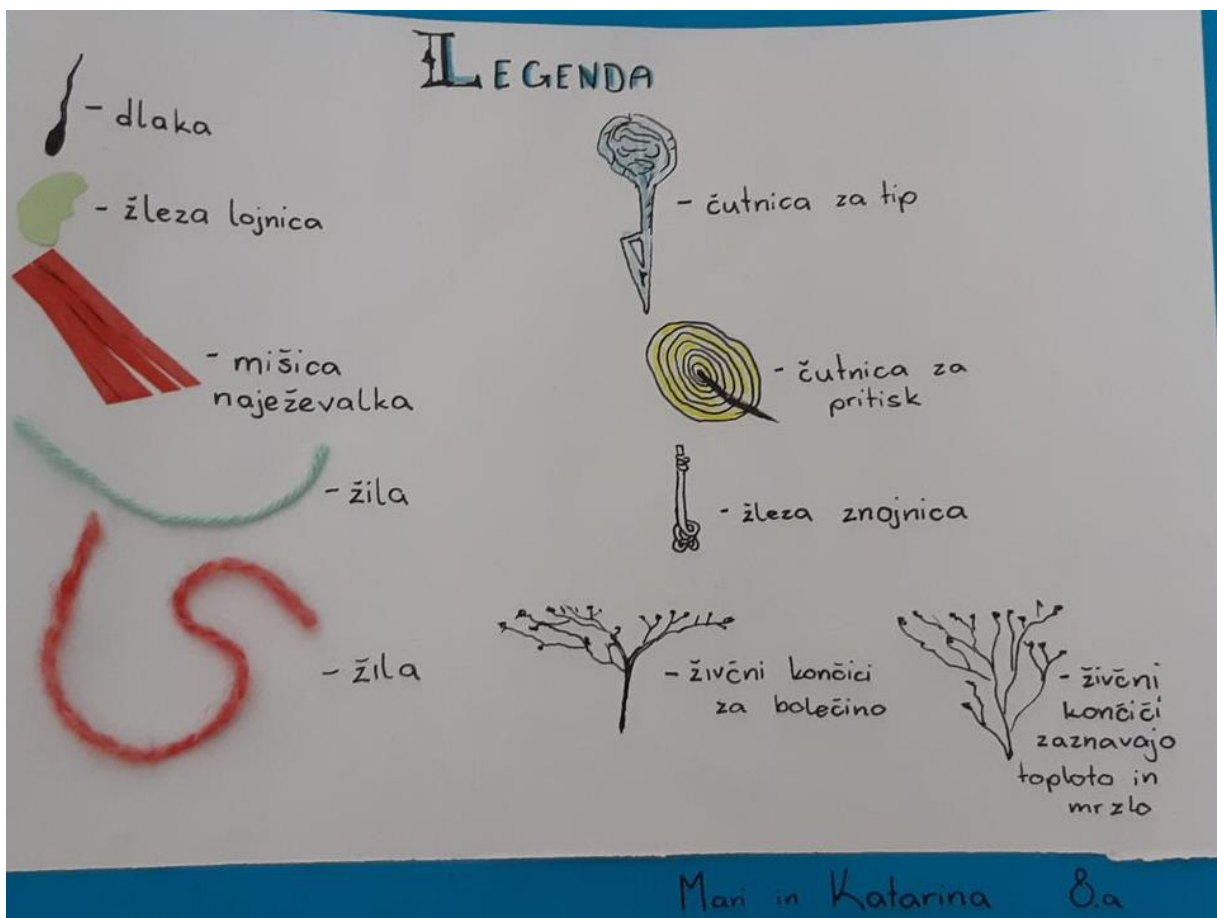 LEGENDA
- dlaka
- žleza lojnica
- mišica
naježevalka
- žila
- žila
- čutnica za tip
- čutnica za
pritisk
- žleza znojnica
- živčni končici
za bolečino
- živčni
končiči
zaznavajo
toploto in
mrzlo
Mari in Katarina 8.a